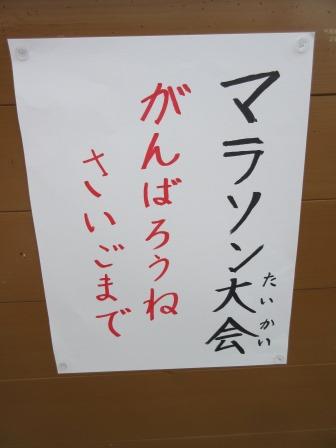 マラソン大会
たいかい
がんばろうね
さいごまで